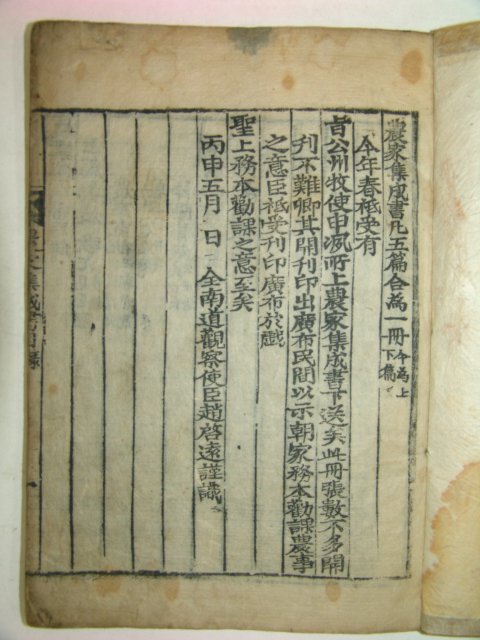 農家集成書凡五篇合為一冊 今為上下篇
今年春祗受有
旨公州牧使申洬所上農家集成書下送矣此冊張數不多開
刊不難卿其開刊印出廣布民間以示朝家務本勸課農事
之意臣祗受刊印廣布於戲
聖上務本勸課之意至矣
丙申五月 日 全南道觀察使臣趙啓遠謹識